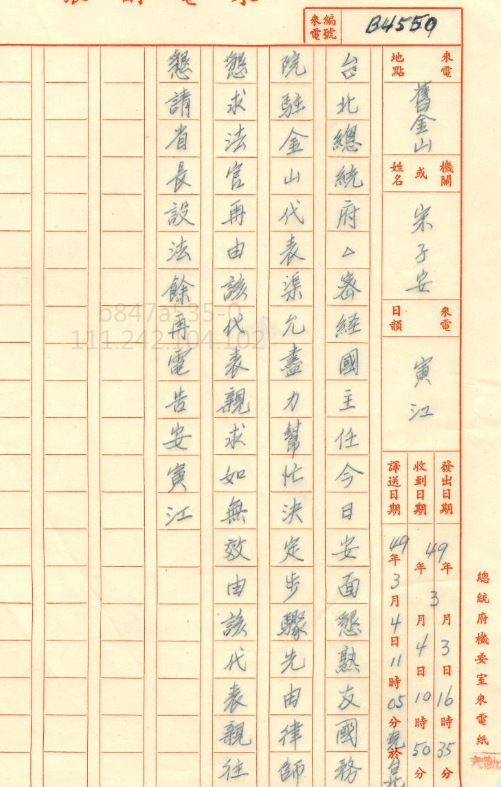 總統府機要室來電紙
來電編號 B4550
來電地點 舊金山
機關或姓名 宋子安
來電日韻 寅江
發出日期 49年3月3日16時35分
收到日期 49年3月4日10時50分
譯送日期 49年3月4日11時05分
台北總統府△密經國主任今日安面懇熟友國務
院駐金山代表渠允盡力幫忙決定步驟先由律師
懇求法官再由該代表親求如無效由該代表親往
懇請省長設法餘再電告安寅江
b847a535-
111.242.104.102